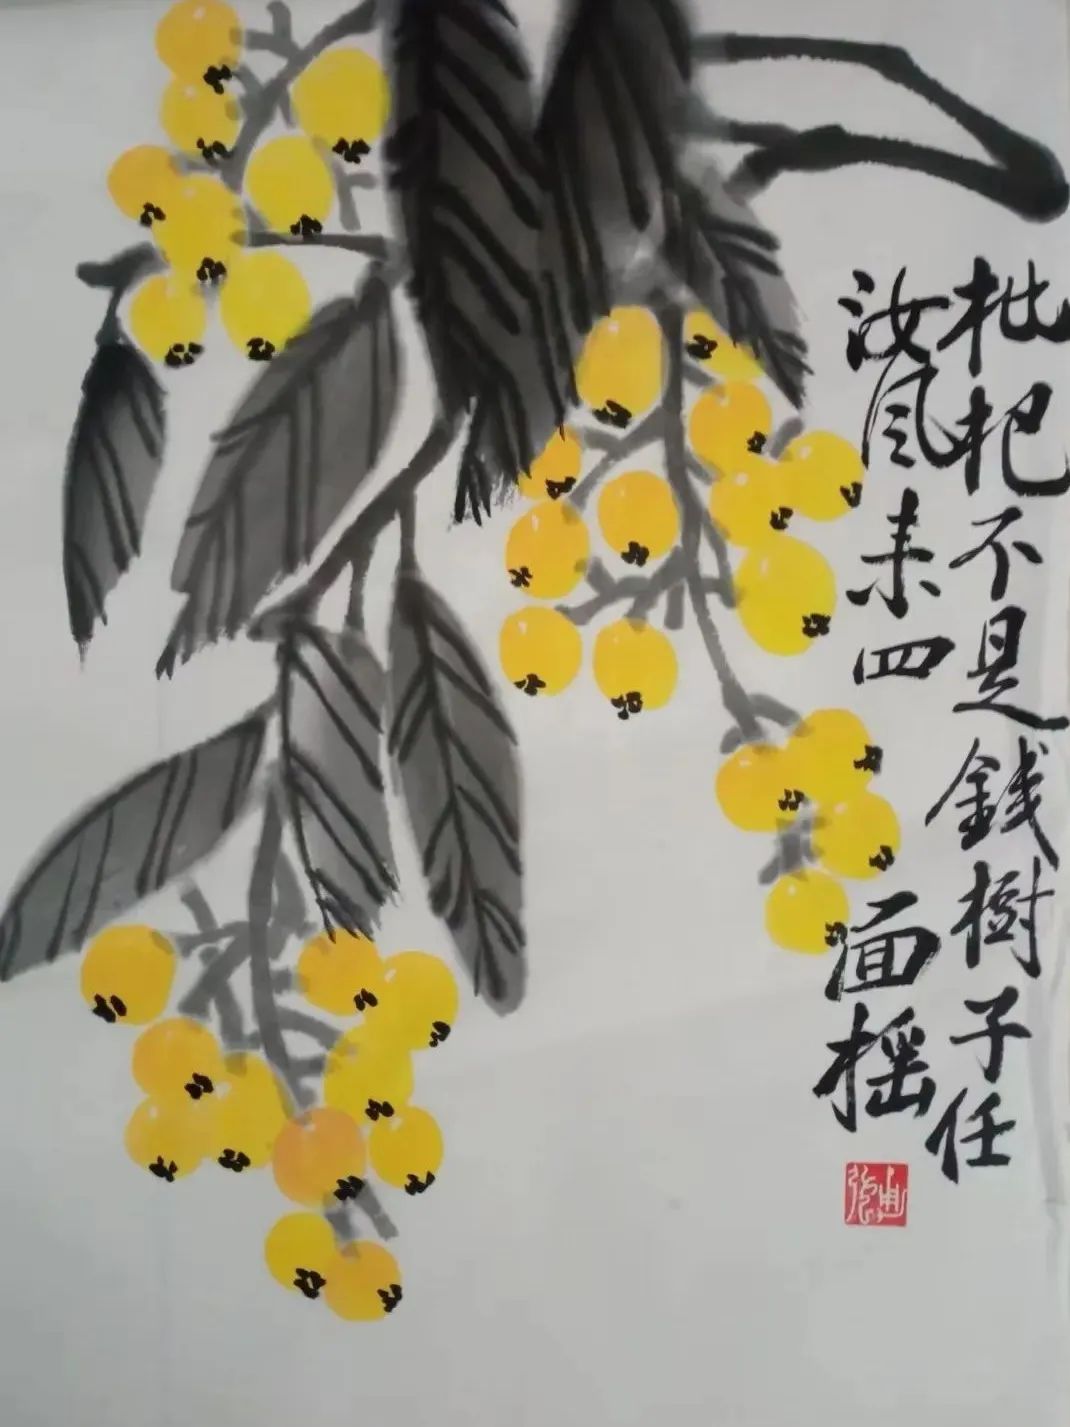 枇杷不是錢樹子任
汝風来四面摇